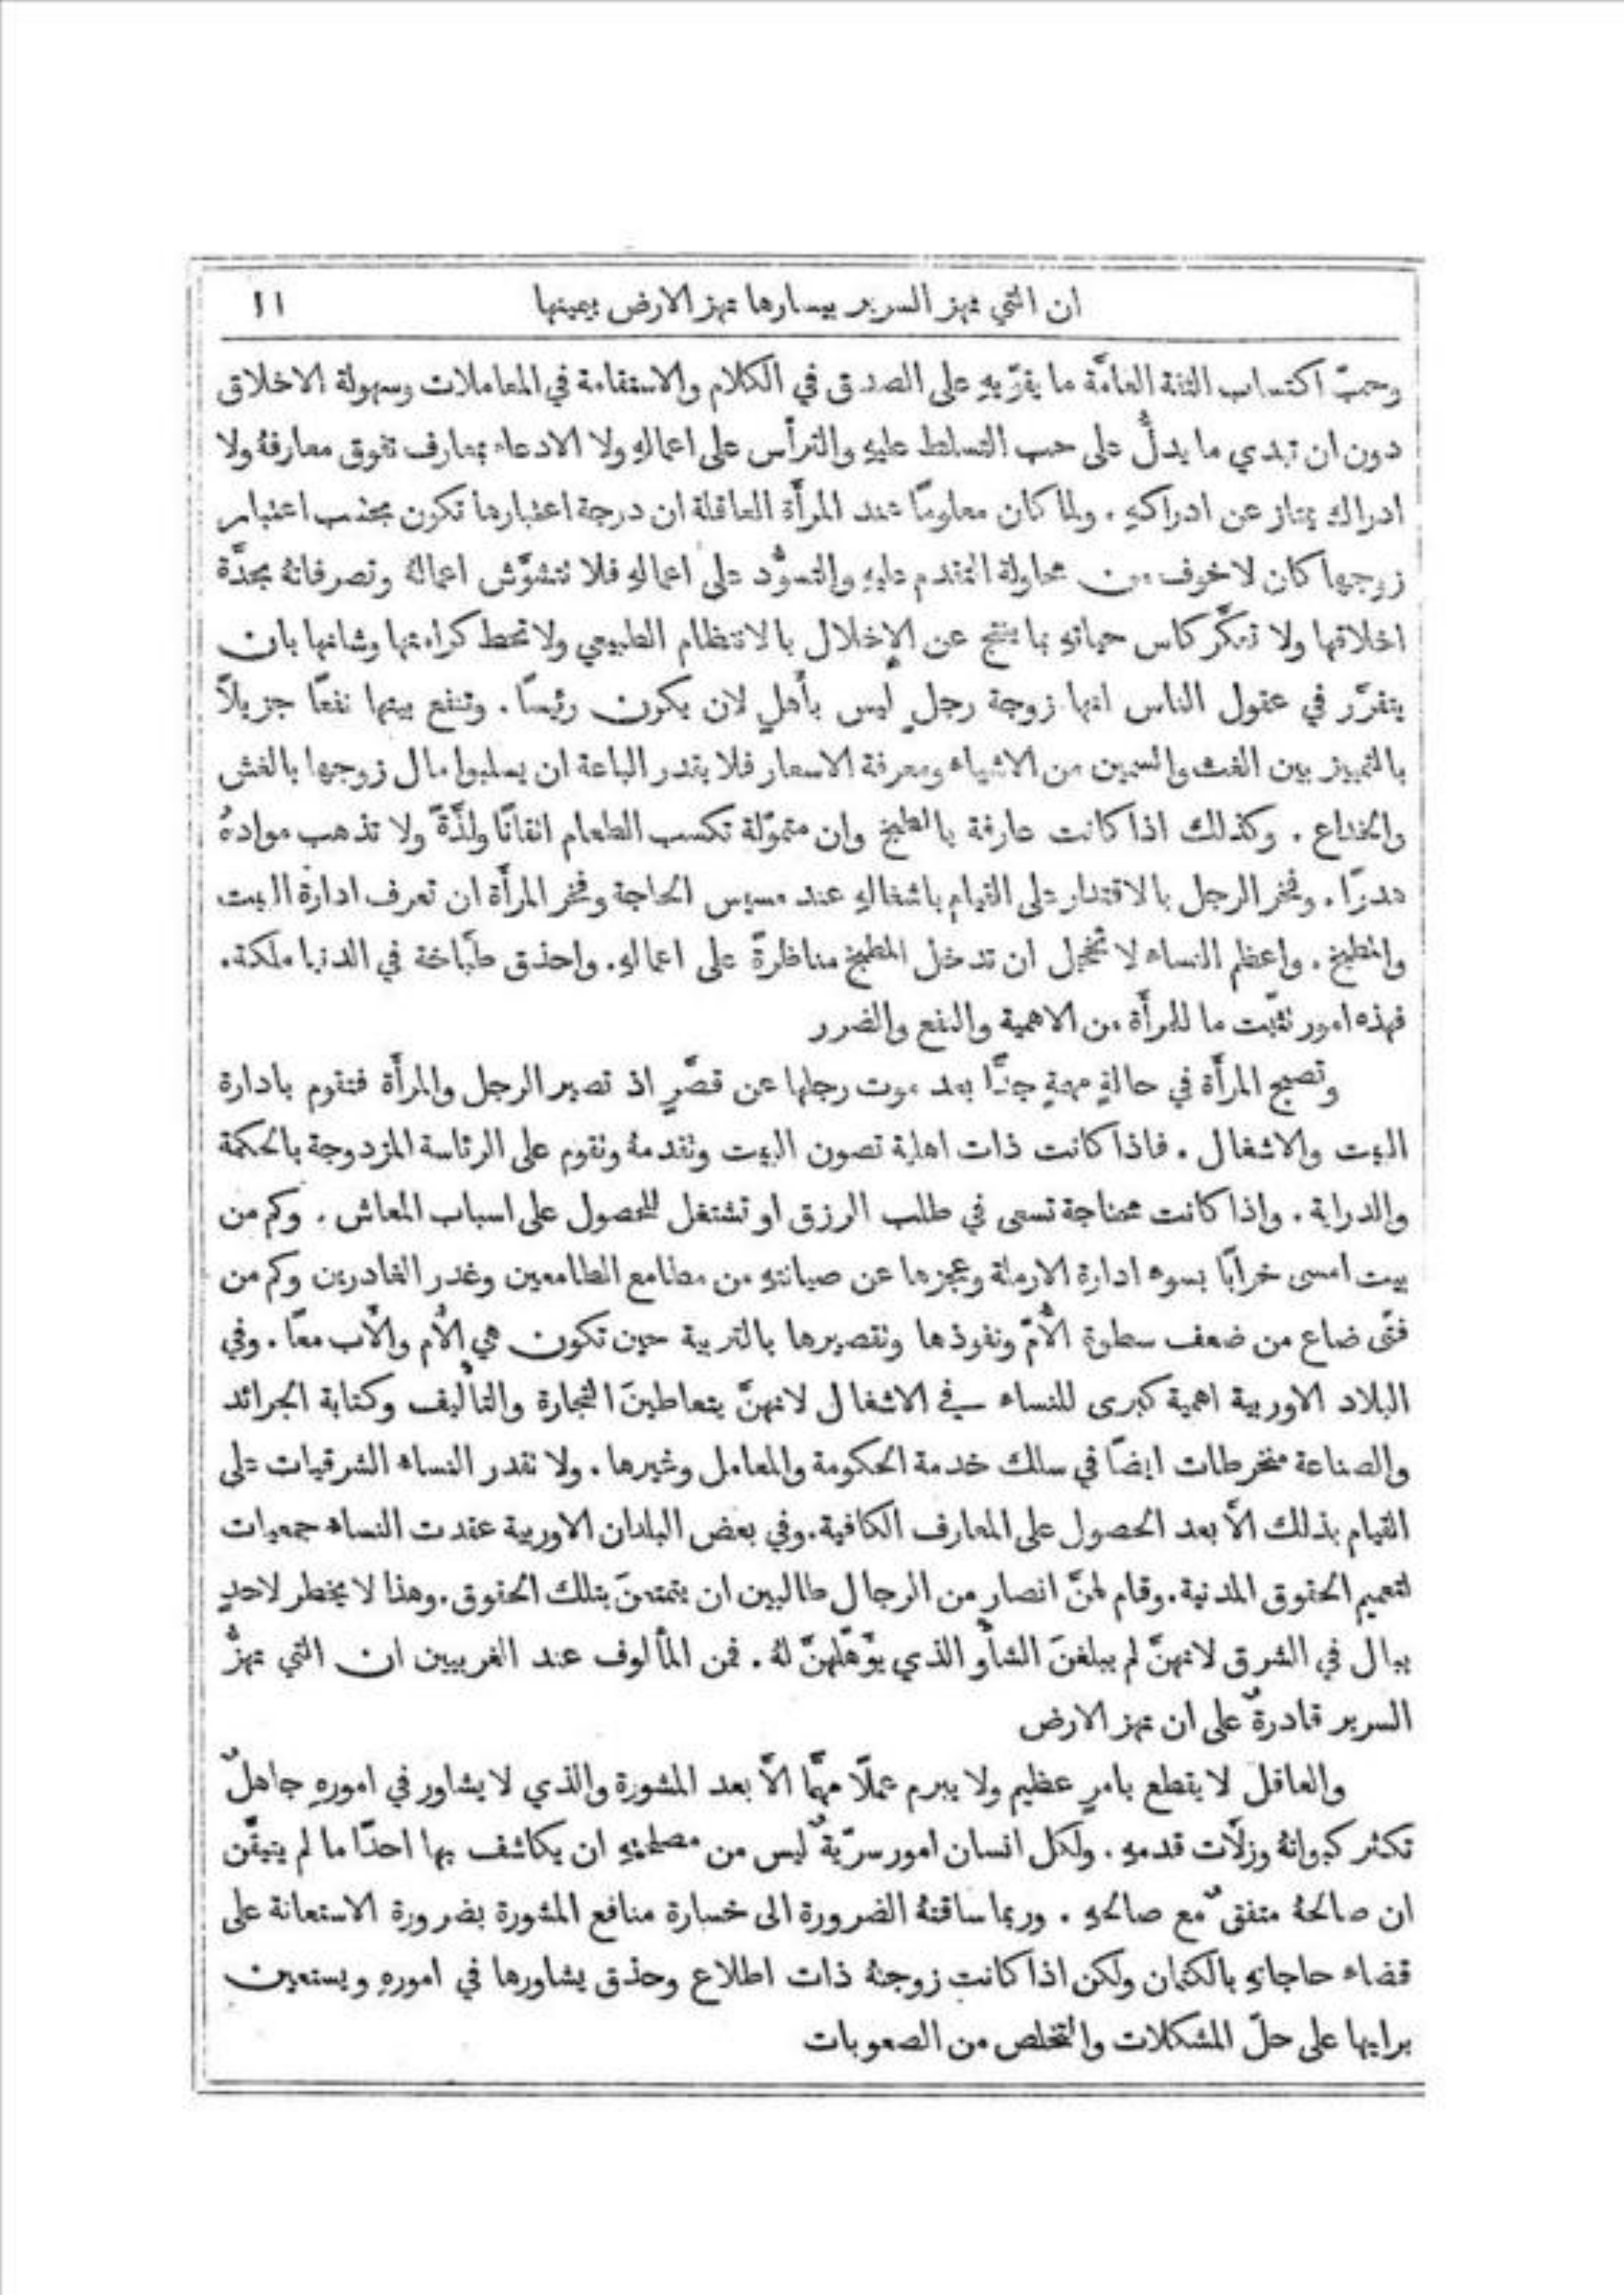 ان التي تهز السرير بيسارها تهز الارض بيمينها ١١
وحبّ اكتساب الثقة العامَّة ما يقوّيهِ على الصدق في الكلام والاستقامة في المعاملات وسهولة الاخلاق
دون ان تبدي ما يدلُّ على حب التسلط عليهِ والترأُّس على اعمالهِ ولا الادعاء بمعارف تفوق معارفهُ ولا
ادراك يمتاز عن ادراكهِ . ولما كان معلومًا عند المرأَة العاقلة ان درجة اعتبارها تكون بحسب اعتبار
زوجها كان لا خوف من محاولة التقدم عليهِ والتسوُّد على اعمالهِ فلا تتشوَّش اعمالهُ وتصرفاتهُ بحدَّة
اخلاقها ولا تعكَّر كاس حياتهِ بما ينتج عن الإخلال بالانتظام الطبيعي ولا تحط كرامتها وشانها بان
يتقرَّر في عقول الناس انها زوجة رجلٍ ليس بأَهلٍ لان يكون رئيسًا . وتنفع بيتها نفعًا جزيلاً
بالتمييز بين الغث والسمين من الاشياء ومعرفة الاسعار فلا يقدر الباعة ان يسلبوا مال زوجها بالغش
والخداع . وكذلك اذا كانت عارفة بالطبخ وان متموّلة تكسب الطعام اتقانًا ولذَّةً ولا تذهب موادهُ
هدرًا . وفخر الرجل بالاقتدار على القيام باشغالهِ عند مسيس الحاجة وفخر المرأَة ان تعرف ادارة البيت
والمطبخ . واعظم النساء لا تخجل ان تدخل المطبخ مناظرةً على اعمالهِ . واحذق طبَّاخة في الدنيا ملكة.
فهذه امور تثبّت ما للمرأَة من الاهمية والنفع والضرر
وتصبح المرأَة في حالةٍ مهمةٍ جدًّا بعد موت رجلها عن قصَّرٍ اذ تصير الرجل والمرأَة فتقوم بادارة
البيت والاشغال . فاذا كانت ذات اهلية تصون البيت وتقدمهُ وتقوم على الرئاسة المزدوجة بالحكمة
والدراية . واذا كانت محتاجة تسعى في طلب الرزق او تشتغل للحصول على اسباب المعاش . وكم من
بيت امسى خرابًا بسوء ادارة الارملة وعجزها عن صيانتهِ من مطامع الطامعين وغدر الغادرين وكم من
فتًى ضاع من ضعف سطوة الأُمّ ونفوذها وتقصيرها بالتربية حين تكون هي الأُم والأَب معًا . وفي
البلاد الاوربية اهمية كبرى للنساء في الاشغال لانهنَّ يتعاطينَ التجارة والتأليف وكتابة الجرائد
والصناعة منخرطات ايضًا في سالك خدمة الحكومة والمعامل وغيرها . ولا تقدر النساء الشرقيات على
القيام بذلك الاَّ بعد الحصول على المعارف الكافية . وفي بعض البلدان الاوربية عقدت النساء جمعيات
لتعميم الحقوق المدنية . وقام لهنَّ انصار من الرجال طالبين ان يتمتعنَ بتلك الحقوق . وهذا لا يخطر لاحدٍ
ببال في الشرق لانهنَّ لم يبلغنَ الشأو الذي يؤَهّلهنَّ لهُ . فمن المألوف عند الغربيين ان التي تهزُّ
السرير قادرةٌ على ان تهز الارض
والعاقل لا يقطع بامرٍ عظيم ولا يبرم عملًا مهمًّا الاَّ بعد المشورة والذي لا يشاور في امورهِ جاهلٌ
تكثر كبواتهُ وزلَّات قدمهِ . ولكل انسان امور سرّيةٌ ليس من مصلحتهِ ان يكاشف بها احدًا ما لم يتيقَّن
ان صالحهُ متفقٌ مع صالحهِ . وربما ساقتهُ الضرورة الى خسارة منافع المشورة بضرورة الاستعانة على
قضاء حاجاتهِ بالكتمان ولكن اذا كانت زوجتهُ ذات اطلاع وحذق يشاورها في امورهِ ويستعين
برايها على حلّ المشكلات والتخلص من الصعوبات